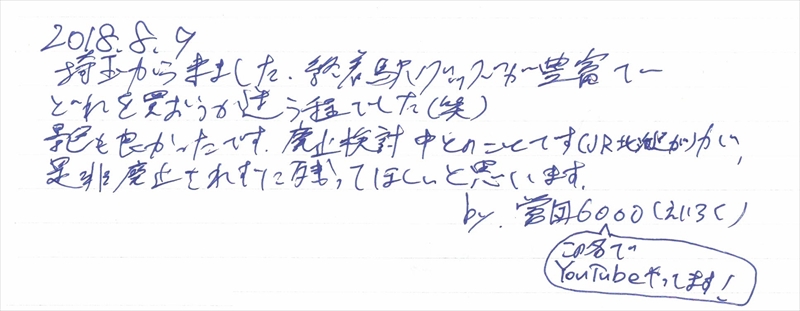 2018.8.9
埼玉から来ました。終着駅グッズが豊富で
どれを買おうか迷う程でした(笑)
景色も良かったです。廃止検討中とのことです(JR北海道が)が、
是非廃止されずに残ってほしいと思います。
by. 営団6000(えいろく)
この名で
YouTubeやってます!